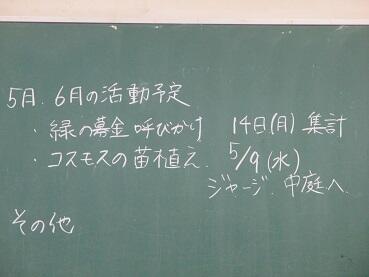 5月.6月の活動予定
・緑の募金呼びかけ 14日(月)集計
・コスモスの苗植え. 5/9(水)
ジャージ.中庭へ
その他